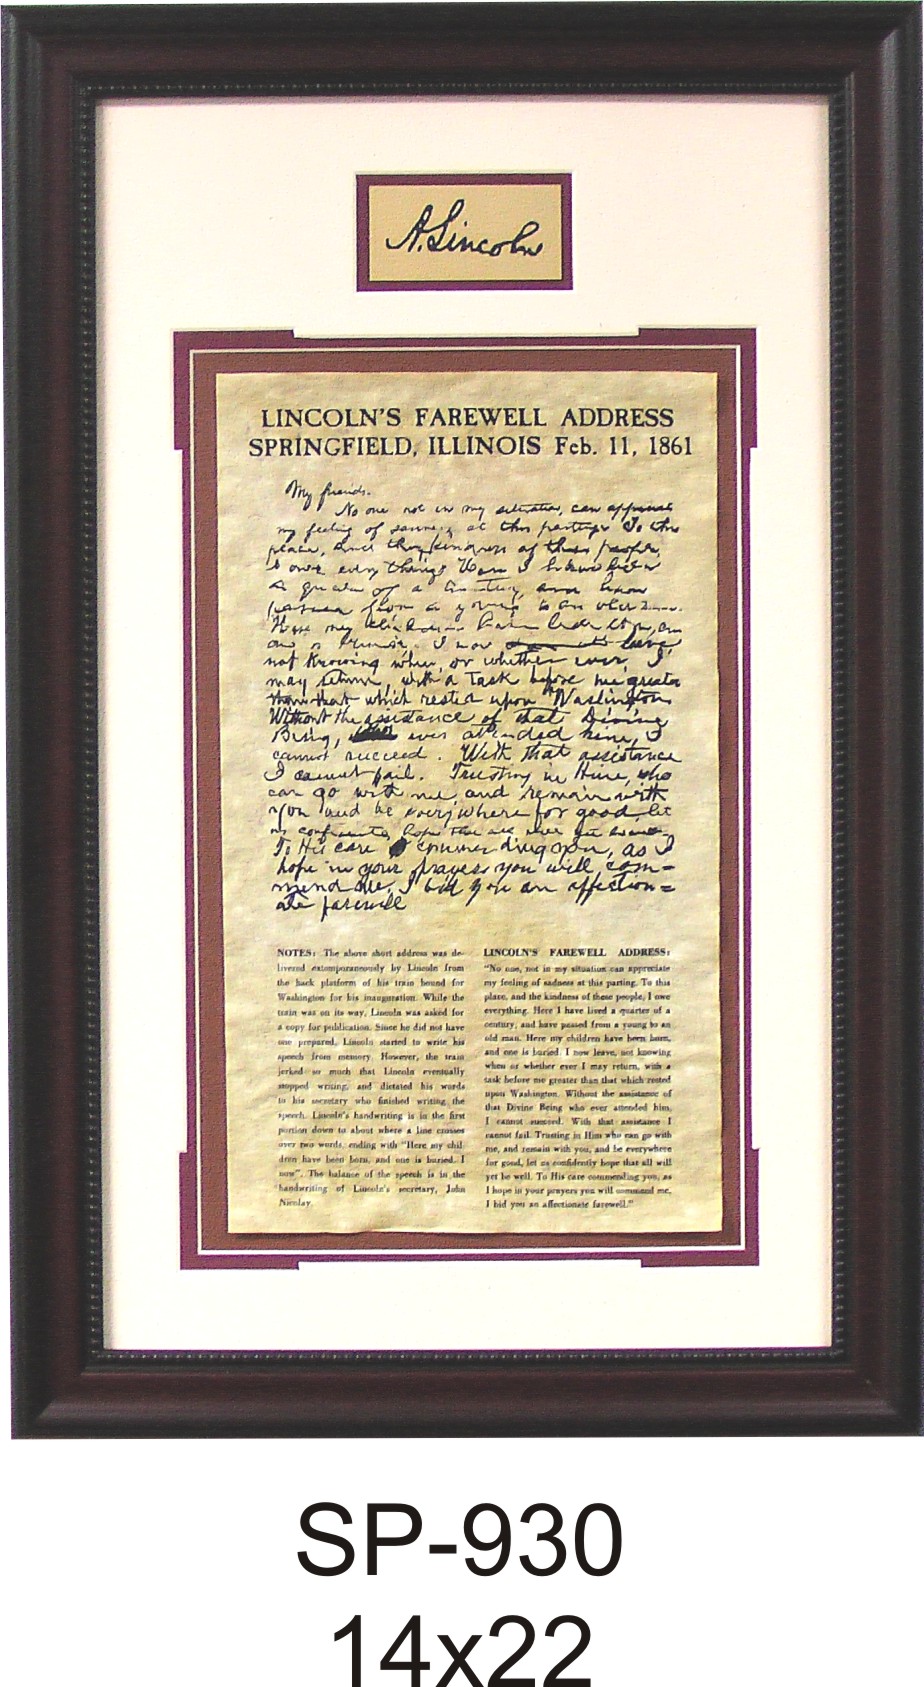 A. Lincoln
LINCOLN'S FAREWELL ADDRESS
SPRINGFIELD, ILLINOIS Feb. 11, 1861
My friends.
No one not in my situation, can appreciate
my feeling of sadness at this parting. To this
place, and the kindness of these people,
I owe every thing. Here I have lived
a quarter of a century, and have
passed from a young to an old man.
Here my children have been born, and
one is buried. I now leave,
not knowing when, or whether ever, I
may return, with a task before me greater
than that which rested upon Washington.
Without the assistance of that Divine
Being, ever attended him, I
cannot succeed. With that assistance
I cannot fail. Trusting in Him, who
can go with me, and remain with
you and be every where for good, let
us confidently hope that all will yet be well.
To His care commending you, as I
hope in your prayers you will com=
mend me, I bid you an affection=
ate farewell
NOTES: The above short address was de-
livered extemporaneously by Lincoln from
the back platform of his train bound for
Washington for his inauguration. While the
train was on its way, Lincoln was asked for
a copy for publication. Since he did not have
one prepared, Lincoln started to write his
speech from memory. However, the train
jerked so much that Lincoln eventually
stopped writing, and dictated his words
to his secretary who finished writing the
speech. Lincoln's handwriting is in the first
portion down to about where a line crosses
over two words, ending with "Here my chil-
dren have been born, and one is buried. I
now". The balance of the speech is in the
handwriting of Lincoln's secretary, John
Nicolay.
LINCOLN'S FAREWELL ADDRESS:
"No one, not in my situation can appreciate
my feeling of sadness at this parting. To this
place, and the kindness of these people, I owe
everything. Here I have lived a quarter of a
century, and have passed from a young to an
old man. Here my children have been born,
and one is buried. I now leave, not knowing
when or whether ever I may return, with a
task before me greater than that which rested
upon Washington. Without the assistance of
that Divine Being who ever attended him,
I cannot succeed. With that assistance I
cannot fail. Trusting in Him who can go with
me, and remain with you, and be everywhere
for good, let us confidently hope that all will
yet be well. To His care commending you, as
I hope in your prayers you will commend me,
I bid you an affectionate farewell."
SP-930
14x22